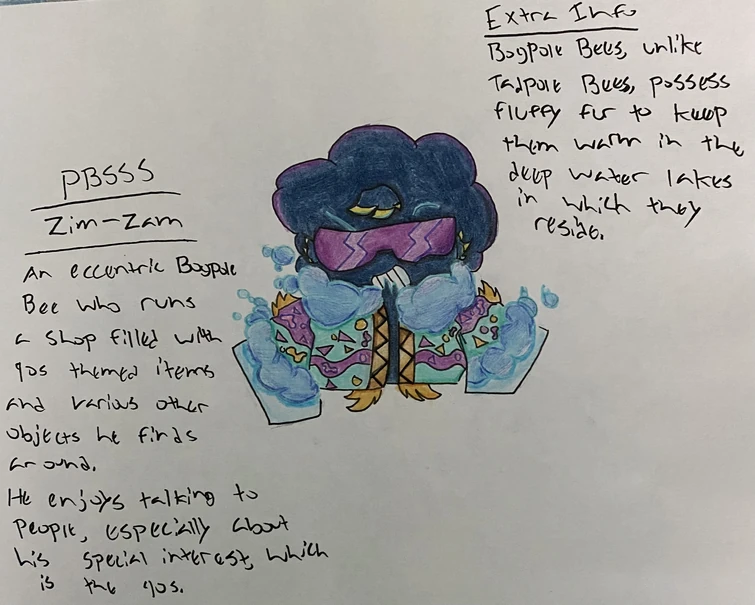 PBSSS
Zim-Zam
An eccentric Bogpole
Bee who runs
a shop filled with
90s themed items
and various other
objects he finds
around.
He enjoys talking to
people, especially about
his special interest, which
is the 90s.
Extra Info
Bogpole Bees, unlike
Tadpole Bees, possess
fluffy fur to keep
them warm in the
deep water lakes
in which they
reside.